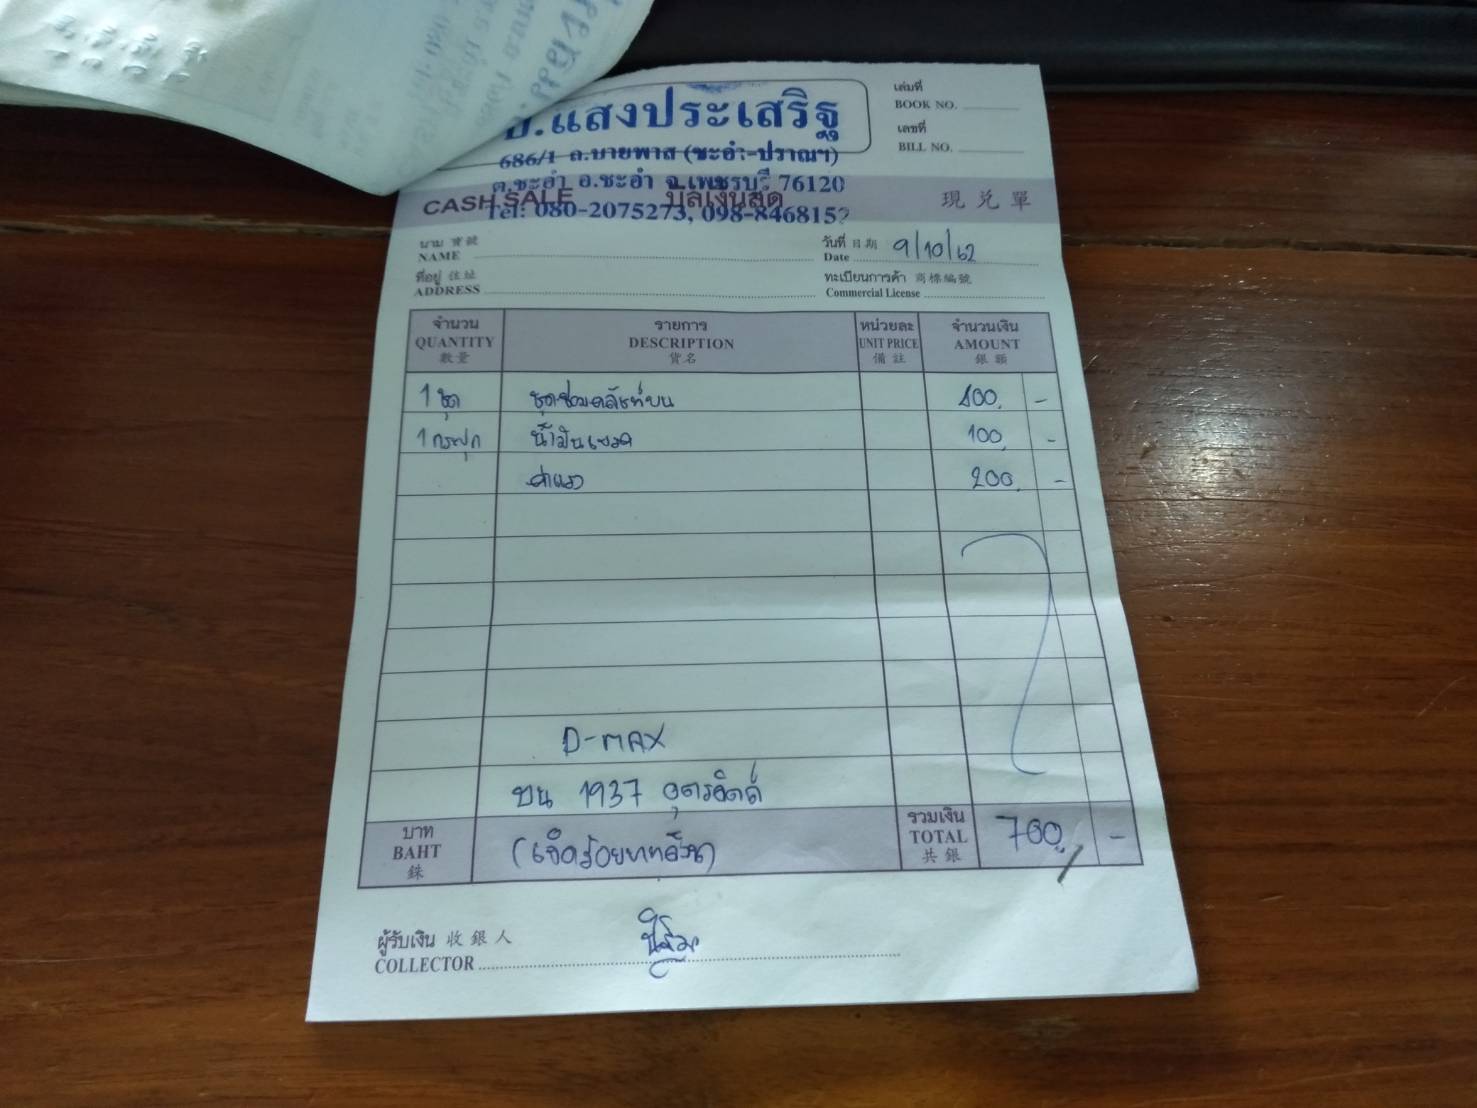 อ.แสงประเสริฐ
686/1 ถ.บายพาส (ชะอำ-ปราณฯ)
ต.ชะอำ อ.ชะอำ จ.เพชรบุรี 76120
Tel: 080-2075273, 098-8468152
เล่มที่
BOOK NO.
เลขที่
BILL NO.
CASH SALE บิลเงินสด 現兑單
นาม 寶號
NAME
วันที่ 日期 9/10/62
Date
ที่อยู่ 住址
ADDRESS
ทะเบียนการค้า 商標編號
Commercial License
จำนวน รายการ หน่วยละ จำนวนเงิน
QUANTITY DESCRIPTION UNIT PRICE AMOUNT
數量 貨名 備註 銀額
1 ชุด ชุดซ่อมคลัชท์บน 400. -
1 กระปุก น้ำมันเบรค 100. -
ค่าแรง 200. -
D-MAX
บน 1937 อุตรดิตถ์
บาท
BAHT
銖
(เจ็ดร้อยบาทถ้วน)
รวมเงิน
TOTAL
共銀
700. -
ผู้รับเงิน 收銀人
COLLECTOR